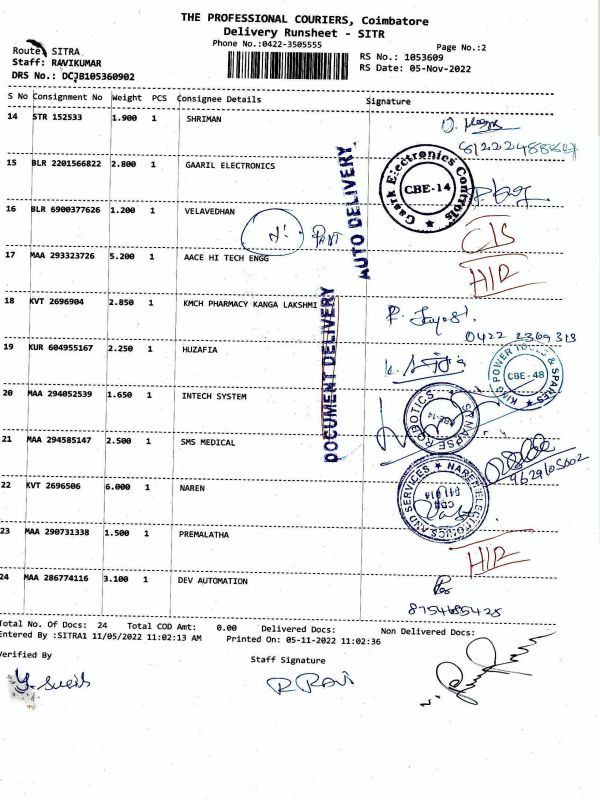 THE PROFESSIONAL COURIERS, Coimbatore
Delivery Runsheet - SITR
Phone No.:0422-3505555
Page No.:2
Route SITRA
Staff: RAVIKUMAR
DRS No.: DCJB105360902
RS No.: 1053609
RS Date: 05-Nov-2022
S No Consignment No Weight PCS Consignee Details Signature
14 STR 152533 1.900 1 SHRIMAN
15 BLR 2201566822 2.800 1 GAARIL ELECTRONICS
Gaark Electronics Controls
CBE-14
AUTO DELIVERY
16 BLR 6900377626 1.200 1 VELAVEDHAN
CIS
17 MAA 293323726 5.200 1 AACE HI TECH ENGG
HIR
18 KVT 2696904 2.850 1 KMCH PHARMACY KANGA LAKSHMI
0422 2369313
DOCUMENT DELIVERY
19 KUR 604955167 2.250 1 HUZAFIA
KING POWER TOOLS & SPARES
CBE-48
20 MAA 294052539 1.650 1 INTECH SYSTEM
ROBOTICS
21 MAA 294585147 2.500 1 SMS MEDICAL
9629105602
22 KVT 2696506 6.000 1 NAREN
NAREN ELECTRONICS AND SERVICES
23 MAA 290731338 1.500 1 PREMALATHA
HIR
24 MAA 286774116 3.100 1 DEV AUTOMATION
8754685425
Total No. Of Docs: 24 Total COD Amt: 0.00 Delivered Docs: Non Delivered Docs:
Entered By :SITRA1 11/05/2022 11:02:13 AM Printed On: 05-11-2022 11:02:36
Verified By
Staff Signature
R RAVI